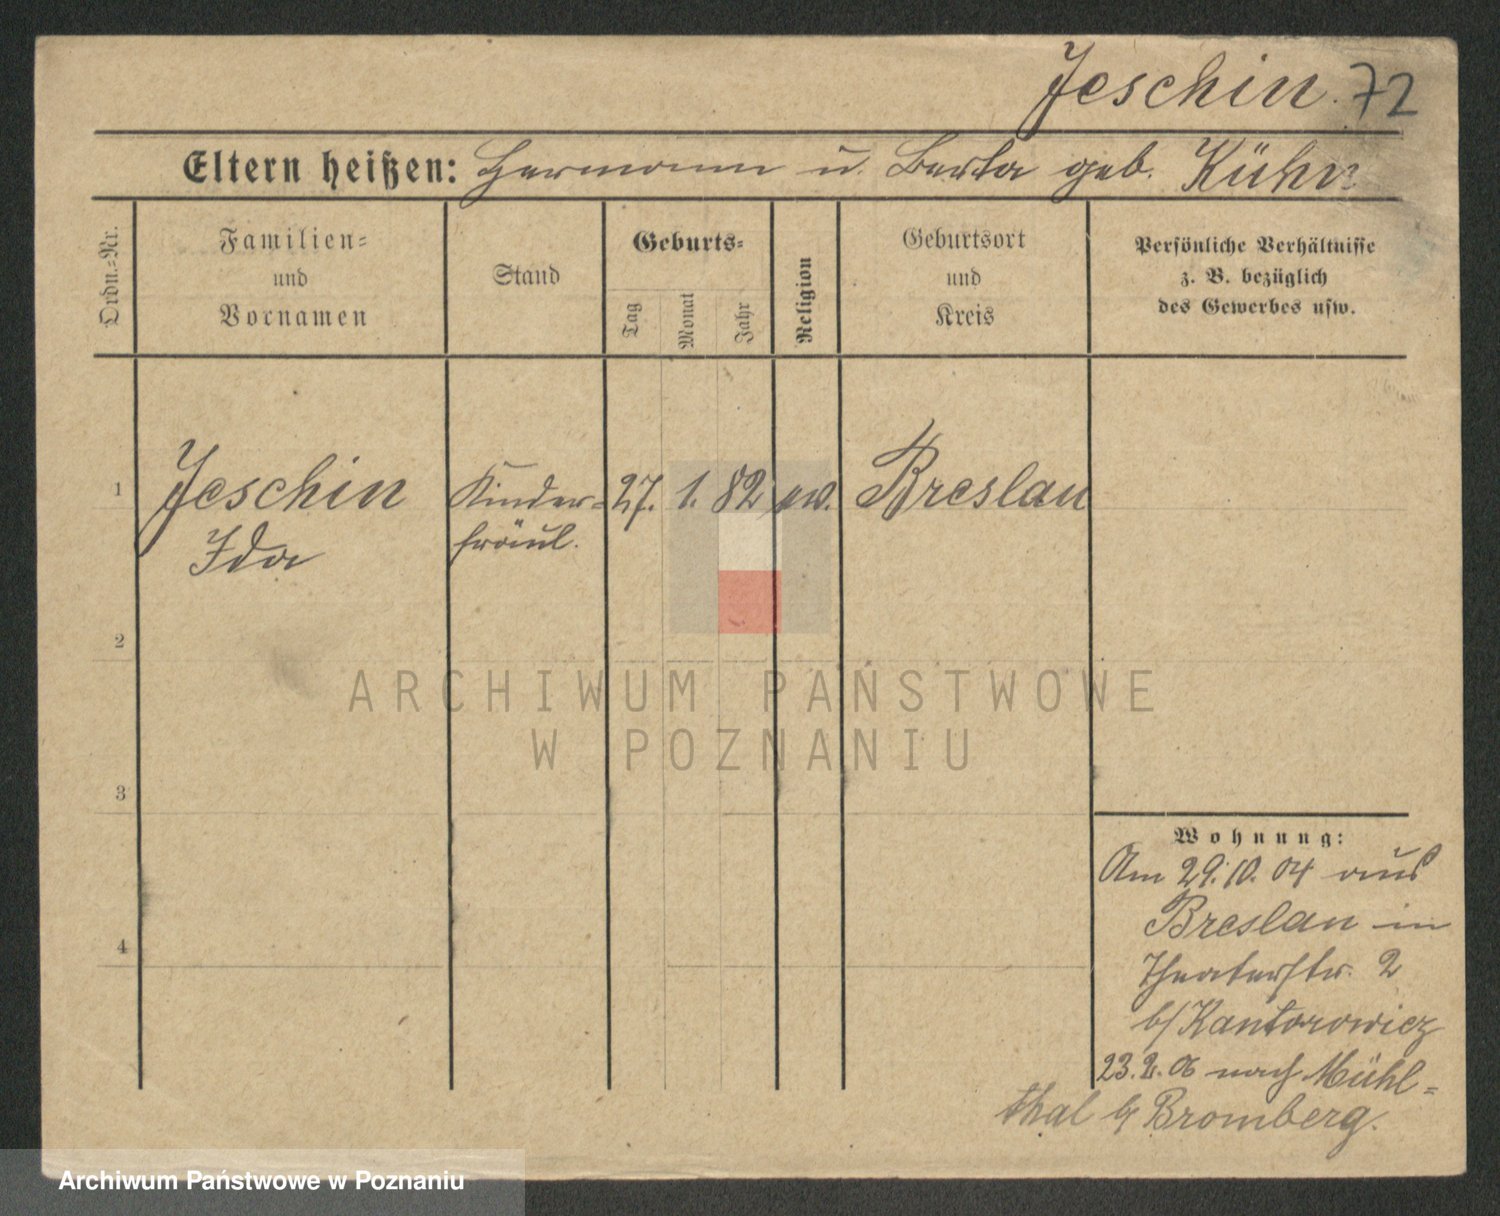 Jeschin. 72
Eltern heißen: Hermann u. Berta geb. Kühn
Ordn.-Nr.
Familien-
und
Vornamen
Stand
Geburts-
Tag
Monat
Jahr
Religion
Geburtsort
und
Kreis
Persönliche Verhältnisse
z. B. bezüglich
des Gewerbes usw.
1 Jeschin Kinder- 27. 1. 82 ev. Breslau
Ida fräul.
2
3
4
Wohnung:
Am 29.10.04 aus
Breslau in
Theaterstr. 2
b/ Kantorowicz
23.2.06 nach Mühl-
thal b/ Bromberg.
ARCHIWUM PAŃSTWOWE
W POZNANIU
Archiwum Państwowe w Poznaniu